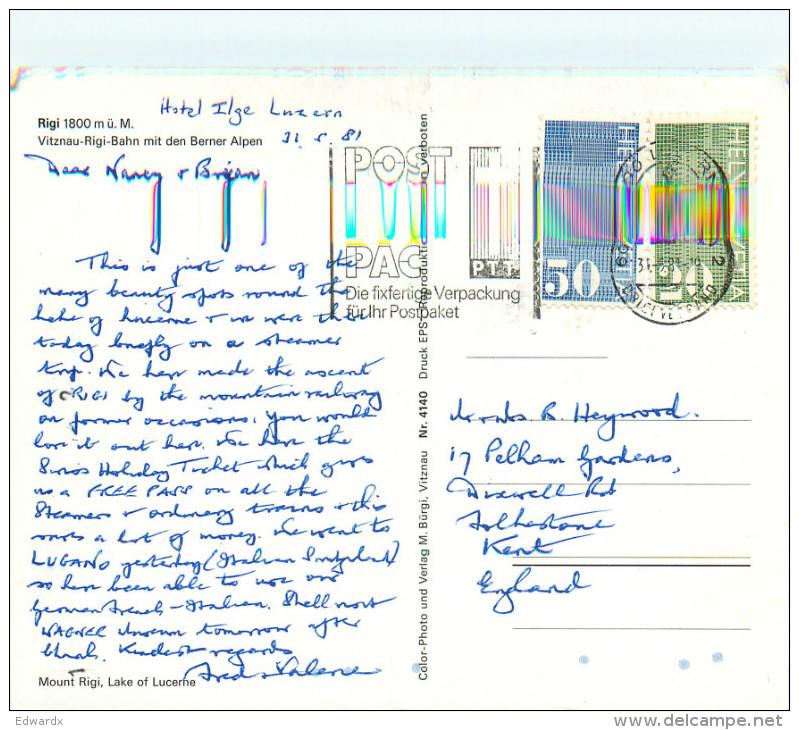 Rigi 1800 m ü. M.
Vitznau-Rigi-Bahn mit den Berner Alpen
Hotel Ilge Luzern
31. 5. 81
Dear Nancy + Brian
This is just one of the
many beauty spots round the
lake of Lucerne + we were there
today briefly on a steamer
trip. We have made the ascent
of RIGI by the mountain railway
on former occasions. You would
love it out here. We have the
Swiss Holiday Ticket which gives
us a FREE PASS on all the
Steamers + ordinary trains + this
saves a lot of money. We went to
LUGANO yesterday (Italian Switzerland)
so have been able to use our
German-French-Italian. Shall visit
WAGNER Museum tomorrow after
Kindest regards
Fred + Valerie
Mount Rigi, Lake of Lucerne
Color-Photo und Verlag M. Bürgi, Vitznau Nr. 4140 Druck EPS Reproduktion verboten
POST
PAC
PTT
Die fixfertige Verpackung
für Ihr Postpaket
HELVETIA
50
HELVETIA
20
Mr + Mrs B. Heywood.
17 Pelham Gardens,
Folkestone
Kent
England
Edwardx
delcampe.net